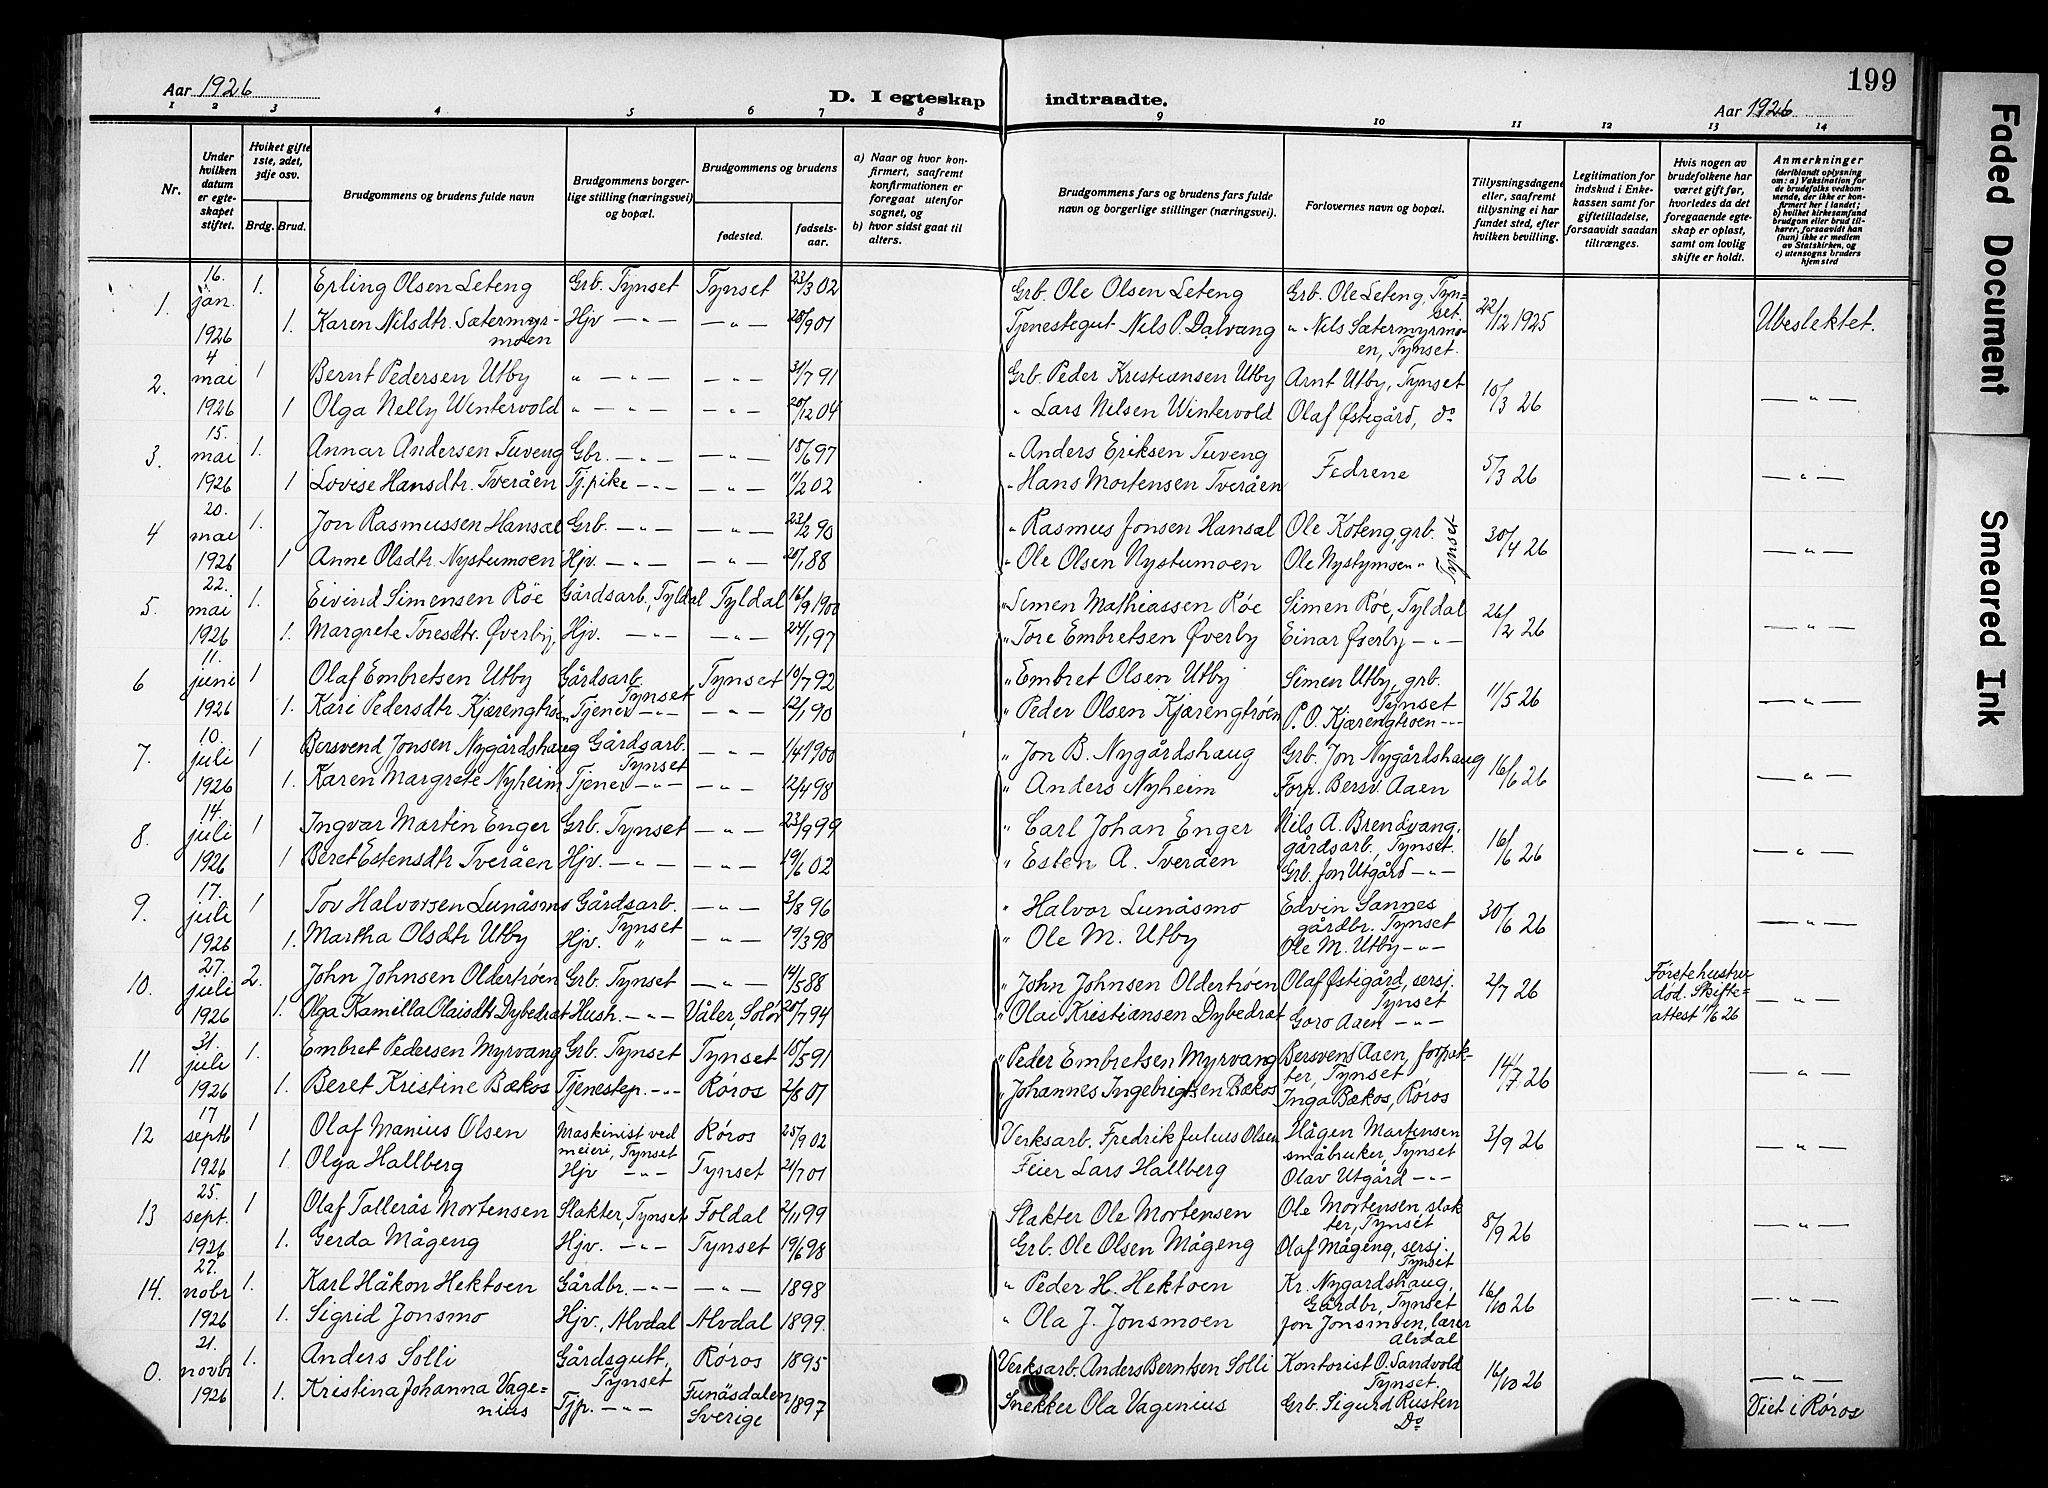 Aar 1926
D. I egteskap indtraadte.
199
Aar 1926
1 2 3 4 5 6 7 8 9 10 11 12 13 14
Nr.
Under hvilken datum er egteskapet stiftet.
Hviket gifte 1ste, 2det, 3dje osv.
Brdg. Brud.
Brudgommens og brudens fulde navn
Brudgommens borgerlige stilling (næringsvei) og bopæl.
Brudgommens og brudens
fødested.
fødselsaar.
a) Naar og hvor konfirmert, saafremt konfirmationen er foregaat utenfor sognet, og
b) hvor sidst gaat til alters.
Brudgommens fars og brudens fars fulde navn og borgerlige stillinger (næringsvei).
Forlovernes navn og bopæl.
Tillysningsdagene eller, saafremt tillysning ei har fundet sted, efter hvilken bevilling.
Legitimation for indskud i Enkekassen samt for giftetilladelse, forsaavidt saadan tiltrænges.
Hvis nogen av brudefolkene har været gift før, hvorledes da det foregaaende egteskap er opløst, samt om lovlig skifte er holdt.
Anmerkninger (deriblandt oplysning om: a) Vaksination for de brudefolks vedkommende, der ikke er konfirmert her i landet; b) hvilket kirkesamfund brudgom eller brud tilhører, forsaavidt han (hun) ikke er medlem av Statskirken, og c) utensogns bruders hjemsted
1. 16. jan. 1926 1. Erling Olsen Leteng Grb. Tynset Tynset 23/3 02 Grb. Ole Olsen Leteng Grb. Ole Leteng, Tynset. 22/12 1925 Ubeslektet.
1. Karen Nilsdtr. Sætermyrmoen Hjv — " — — " — 28/9 01 Tjenestegut Nils P. Dalvang " Nils Sætermyrmoen, Tynset.
2. 4 mai 1926 1 Bernt Pedersen Utby " — " — — " — 31/7 91 Grb. Peder Kristiansen Utby Arnt Utby, Tynset 10/3 26 — " —
1 Olga Nelly Wintervold " — " — — " — 20/12 04 " Lars Nilsen Wintervold Olaf Østegård, do
3. 15. mai 1926 1. Annar Andersen Tuveng Gbr. — " — — " — 18/6 97 " Anders Eriksen Tuveng Fedrene 5/3 26 — " —
1 Lovise Hansdtr. Tveråen Tj.pike — " — — " — 11/2 02 " Hans Mortensen Tveråen
4 20. mai 1926 1. Jon Rasmussen Hansæl Grb. — " — — " — 23/2 90 " Rasmus Jonsen Hansæl Ole Koteng, grb. Tynset 30/4 26 — " —
1 Anne Olsdtr. Nystumoen Hjv. — " — — " — 20/1 88 " Ole Olsen Nystumoen Ole Nystymoen "
5. 22. mai 1926 1. Eivind Simensen Røe Gårdsarb., Tyldal Tyldal 16/9 1900 " Simen Mathiassen Røe Simen Røe, Tyldal 26/2 26 — " —
1. Margrete Toresdtr. Øverby, Hjv. — " — — " — 24/1 97 " Tore Embretsen Øverby Einar Øverby — " —
6 11. juni 1926 1 Olaf Embretsen Utby Gårdsarb. Tynset Tynset 10/7 92 " Embret Olsen Utby Simen Utby, grb. Tynset 11/5 26 — " —
1. Kari Pedersdtr. Kjærengtrøen Tjener — " — — " — 12/1 90 " Peder Olsen Kjærengtrøen P. O. Kjærengtroen — " —
7. 10. juli 1926 1 Bersvend Jonsen Nygårdshaug Gårdsarb. Tynset — " — 1/4 1900 " Jon B. Nygårdshaug Grb. Jon Nygårdshaug 16/6 26 — " —
1. Karen Margrete Nyheim Tjener — " — — " — 12/4 98 " Anders Nyheim Forp. Bersv. Aaen
8. 14. juli 1926 1 Ingvar Martin Enger Grb. Tynset — " — 23/9 99 " Carl Johan Enger Nils A. Brendvang, gårdsarb. Tynset. 16/6 26 — " —
1 Beret Estensdtr Tveråen Hjv. — " — — " — 19/6 02 " Esten A. Tveråen Grb. Jon Utgård — " —
9. 17. juli 1926 1 Tov Halvorsen Lunåsmo Gårdsarb. Tynset — " — 3/8 96 " Halvor Lunåsmo Edvin Sannes gårdbr. Tynset 30/6 26 — " —
1. Martha Olsdtr Utby Hjv. " — " — 19/3 98 " Ole M. Utby Ole M. Utby — " —
10. 27. juli 1926 2. John Johnsen Oldertrøen Grb. Tynset — " — 14/5 88 " John Johnsen Oldertrøen Olaf Østigård, sersj. Tynset 2/7 26 Første hustru død. Skifteattest 11/6 26 — " —
1. Olga Kamilla Olaisdtr Dybedrat Hush. — " — Våler, Solør 20/7 94 " Olai Kristiansen Dybedrat Goro Aaen — " —
11 31. juli 1926 1. Embret Pedersen Myrvang Grb. Tynset Tynset 18/5 91 " Peder Embretsen Myrvang Bersvend Aaen, forpakter, Tynset 14/7 26 — " —
1. Beret Kristine Bækos Tjenestep. — " — Røros 2/8 01 " Johannes Ingebrigtsen Bækos Inga Bækos, Røros
12 17 septb 1926 1 Olaf Manius Olsen Maskinist ved meieri, Tynset Røros 25/9 02 Verksarb. Fredrik Julius Olsen Hågen Martensen småbruker, Tynset 3/9 26 — " —
1. Olga Hallberg Hjv — " — Tynset 21/7 01 Feier Lars Hallberg Olav Utgård — " —
13 25. sept. 1926 1 Olaf Tallerås Mortensen Slakter, Tynset Foldal 2/11 99 Slakter Ole Mortensen Ole Mortensen, slakter, Tynset 8/9 26 — " —
1. Gerda Mågeng Hjv. — " — Tynset 19/6 98 Grb. Ole Olsen Mågeng Olaf Mågeng, sersj. Tynset
14. 27. nobr 1926 1. Karl Håkon Hektoen Gårdbr. — " — — " — 1898 " Peder H. Hektoen Kr. Nygardshaug, Gårdbr, Tynset 16/10 26 — " —
1. Sigrid Jonsmo Hjv., Alvdal Alvdal 1899. " Ola J. Jonsmoen Jon Jonsmoen, lærer Alvdal
0. 21. novbr 1926 1. Anders Solli Gårdsgutt, Tynset Røros 1895 Verksarb. Anders Berntsen Solli Kontorist O. Sandvold Tynset. 16/10 26 — " —
1. Kristina Johanna Vagenius Tjp. — " — Funäsdalen Sverige 1897 Snekker Ola Vagenius Grb. Sigurd Rusten Do Viet i Røros
Faded Document
Smeared Ink